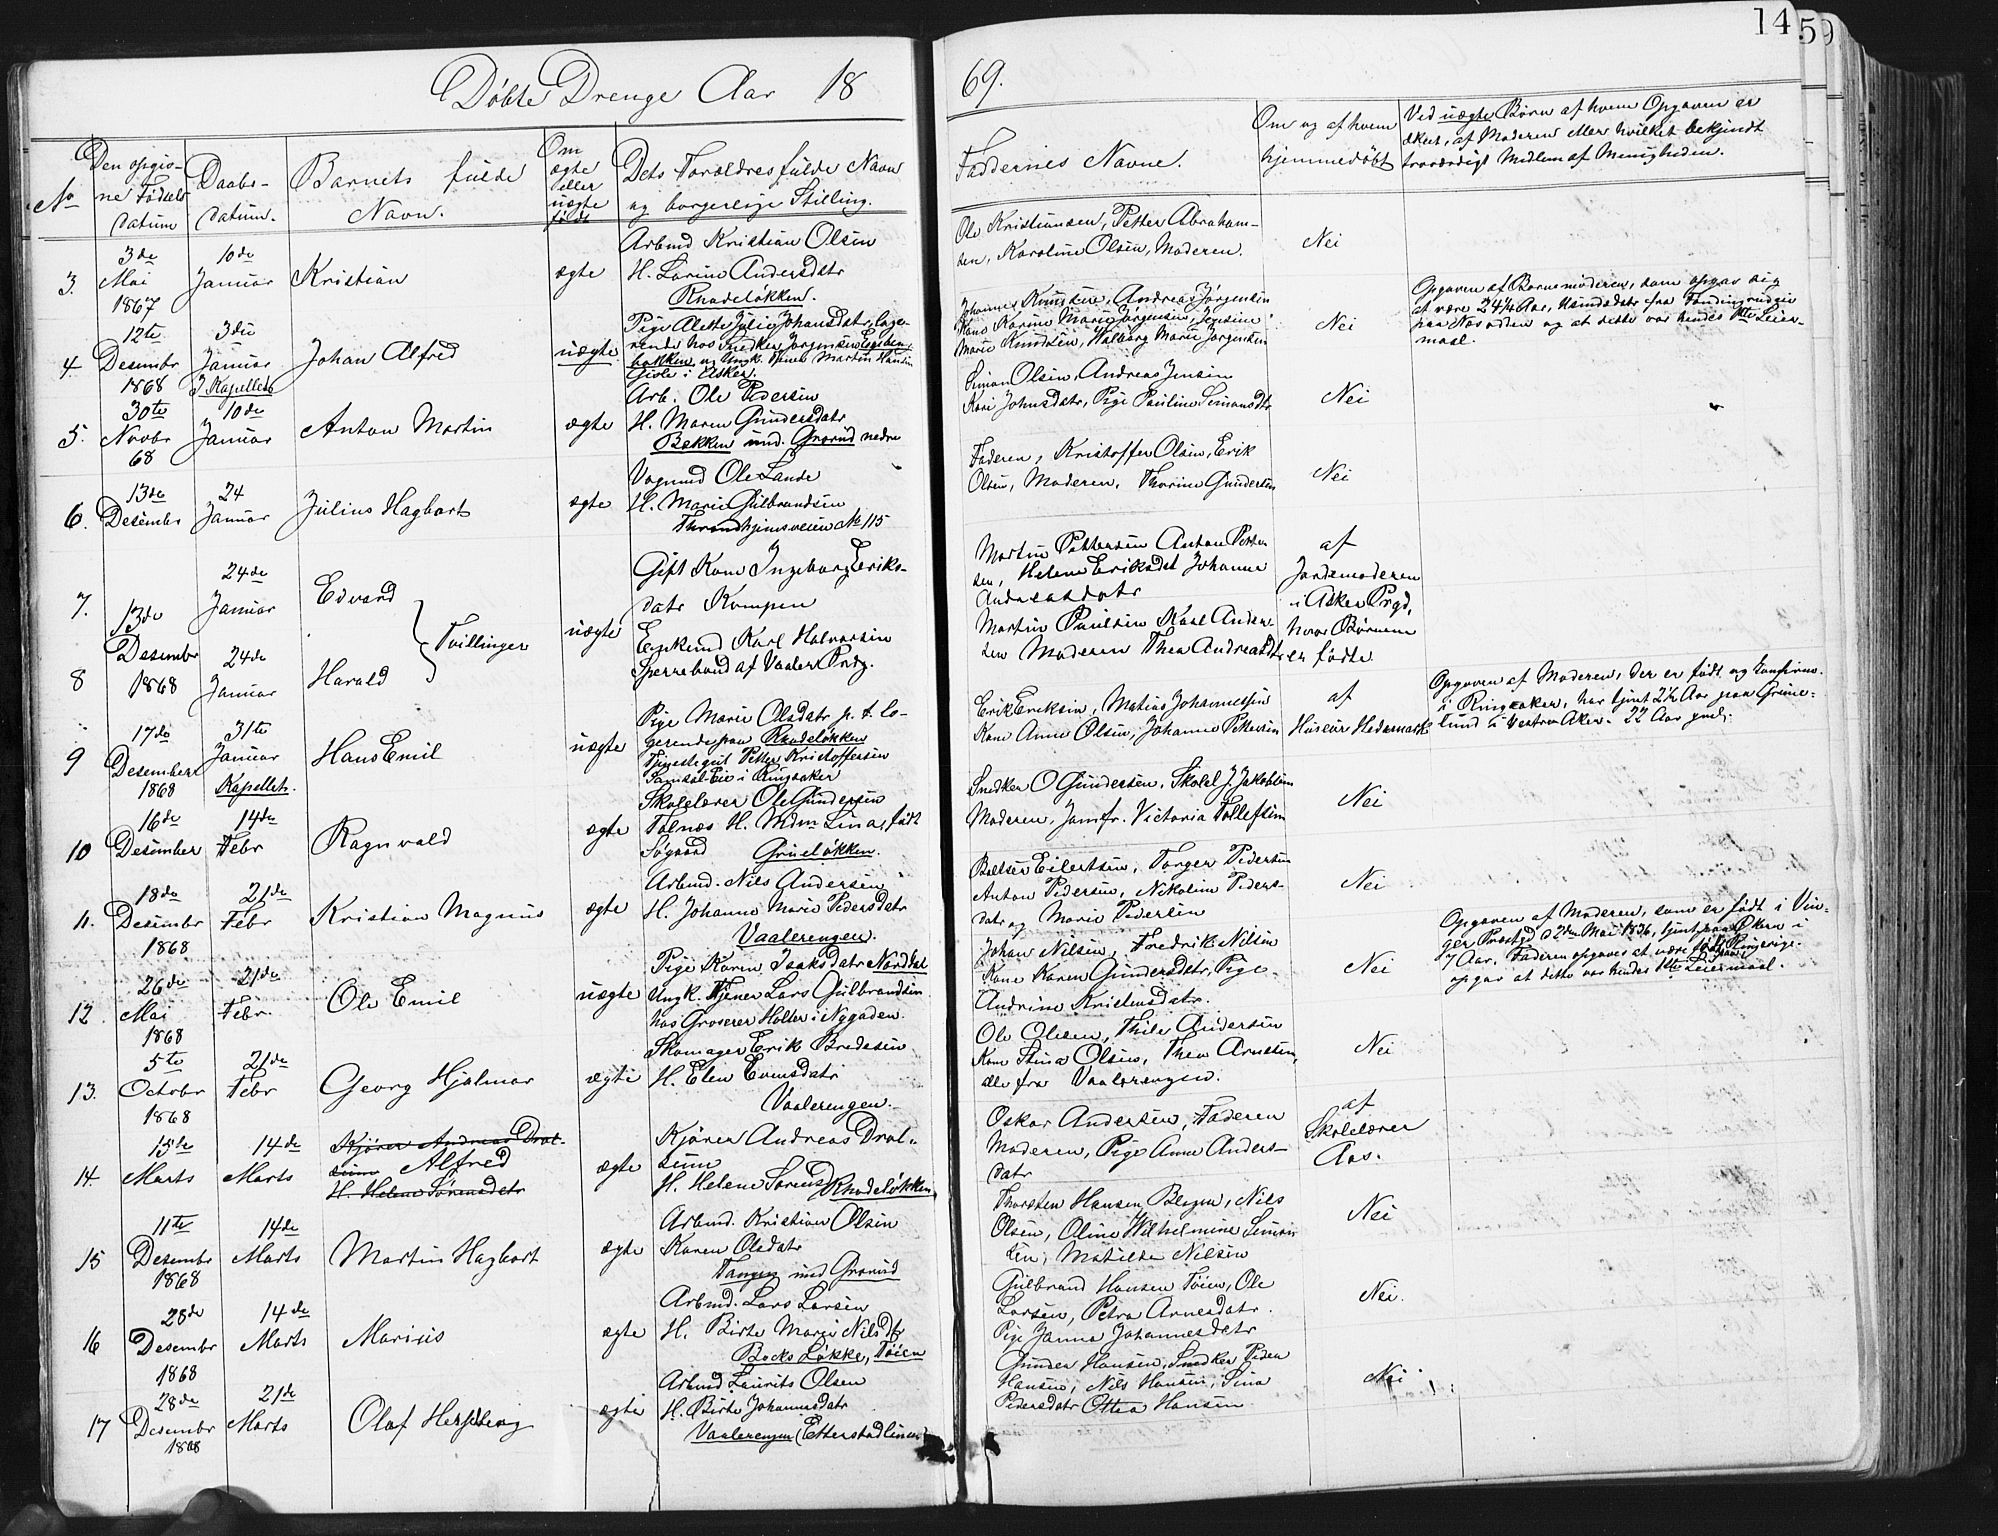 14
59
Døbte Drenge Aar 18
69.
No
Den opgivne Fødsels datum
Daabsdatum.
Barnets fulde Navn.
Om ægte eller uægte født
Dets Forældres fulde Navn og borgerlige Stilling.
Faddernes Navne.
Om og af hvem hjemmedøbt
Ved uægte Børn af hvem Opgaven er skeet, af Moderen eller hvilket bekjendt troværdigt Medlem af Menigheden.
3.
3de Mai 1867
10de Januar
Kristian
ægte
Arbmd Kristian Olsen
H. Larine Andersdatr
Rodeløkken.
Ole Kristiansen, Petter Abraham-
sen, Karoline Olsen, Moderen.
Nei
4
12te Desember 1868
3die Januar
I Kapellet
Johan Alfred
uægte
Pige Alette Julie Johansdatr, loge-
rende hos Snedker Jørgensen
bakken og Ungk. Tjener Martin Hansen
i Asker.
Johannes Knudsen, Andreas Jørgensen
Kone Karine Marie Jørgensen, Jensine
Marie Knudsen, Valborg Marie Jørgensen
Nei
Opgaven af Barnemoderen, som opgav sig
at være 24¼ Aar,
paa Næsodden og at dette var hendes 1ste Leier-
maal.
5.
30te Novbr 68
10de Januar
Anton Martin
ægte
Arb. Ole Pedersen
H. Maren Gundersdatr
Bakken und. Grorud nedre
Simon Olsen, Andreas Jensen
Kari Johnsdatr, Pige Pauline Simensdtr
Nei
6.
13de Desember
24 Januar
Julius Hagbart
ægte
Vognmd Ole Lande
H. Marie Gulbrandsen
Throndhjemsveien No 115
Faderen, Kristoffer Olsen, Erik
Olsen, Moderen, Thorine Gundersen
Nei
7.
13de Desember 1868
24de Januar
Edvard
Tvillinger
uægte
Gift Kone Ingeborg Eriks-
datr Kampen
Enkemd Karl Halvorsen
Sperrebond af Vaaler Prgj.
Martin Pettersen Anton Petter-
sen, Helene Eriksdat Johanne
Andreasdatr
af
Jordemoderen
i Asker Prgd,
hvor Børnene
er fødte.
8
24de Januar
Harald
Martin Paulsen Karl Ander-
sen Moderen Thea Andreasdtr
9
17de Desember 1868
31te Januar
Kapellet.
Hans Emil
uægte
Pige Marie Olsdatr p. t. lo-
gerende paa Rodeløkken
Petter Kristoffersen
i Ringsaker
Erik Eriksen, Matias Johannessen
Kone Anne Olsen, Johanne Pettersen
af
Hedemark
Opgaven af Moderen, der er født og konfirm.
i Ringsaker, har tjent 2½ Aar paa Grüne-
lund i Vestre Aker. 22 Aar gml.
10
16de Desember
14de Febr
Ragnvald
ægte
Skolelærer Ole Gundersen
Tolnæs H. Mdm Lina, født
Søgaard Grüneløkken.
Snedker O Gundersen, Skolel J. Jakobsen
Moderen, Jomfr. Victoria Tollefsen
Nei
11.
18de Desember 1868
21de Febr
Kristian Magnus
ægte
Arbmd. Nils Andersen
H. Johanne Marie Pedersdatr
Vaalerengen.
Eilertsen, Torger Pedersen
Anton Pedersen, Nikoline Peders-
datr og Marie Pedersen
Nei
12.
26de Mai 1868
21de Febr.
Ole Emil
uægte
Pige Karen Isaksdatr Nordbæk
Ungk. Tjener Lars Gulbrandsen
hos Groserer Holter i Nygaden.
Johan Nilsen, Fredrik Nilsen
Kone Karen Gundersdatr, Pige
Andrine Kristensdatr.
Nei
Opgaven af Moderen, som er født i Vin-
ger Prestgd 2den Mai 1836, tjent paa Økern i
7 Aar. Faderen opgaves at være født paa Ringerige.
opgav at dette var hendes 1ste Leiermaal.
13.
5te October 1868
21de Febr
Georg Hjalmar
ægte
Skomager Erik Bredesen
H. Elen Evensdatr
Vaalerengen.
Ole Olesen, Thile Andersen
Kone Stina Olsen, Thea Arntsen,
alle fra Vaalerengen.
Nei
14.
15te Marts
14de Marts
Kjører Andreas Drol-
sum Alfred
H. Helene Sørensdatr
ægte
Kjører Andreas Drol-
sum
H. Helene Sørensd Rodeløkken
Oskar Andersen, Faderen
Moderen, Pige Anne Anders-
datr
af
Skolelærer
Aas.
15
11te Desembr 1868
14de Marts
Martin Hagbart
ægte
Arbmd. Kristian Olsen
Karen Olsdatr
Tangen und Grorud
Thorsten Hansen Blegen, Nils
Olsen, Oline Wilhelmine Simen-
sen, Matilde Nilsen
Nei
16
28de Desembr 1868
14de Marts
Marius
ægte
Arbmd. Lars Larsen
H. Birte Marie Nilsdtr
Bocks Løkke, Tøien
Gulbrand Hansen Tøien, Ole
Larsen, Petra Arnesdatr.
Pige Janna Johannesdatr
Nei.
17
28de Desembr 1868
21de Marts
Olaf Hersleb
ægte
Arbmd Laurits Olsen
H. Birte Johannesdatr
Vaalerengen (Etterstadlinien)
Gunder Hansen, Snedker Peder
Hansen, Nils Hansen, Lina
Pedersdatr Ottea Hansen.
Nei